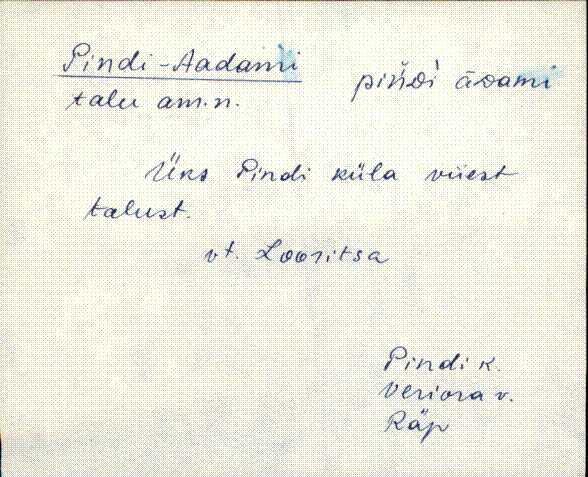 Pindi-Aadami pińďi āďami
talu am.n.
Üks Pindi küla viiest
talust.
vt. Looritsa
Pindi k.
Veriora v.
Räp